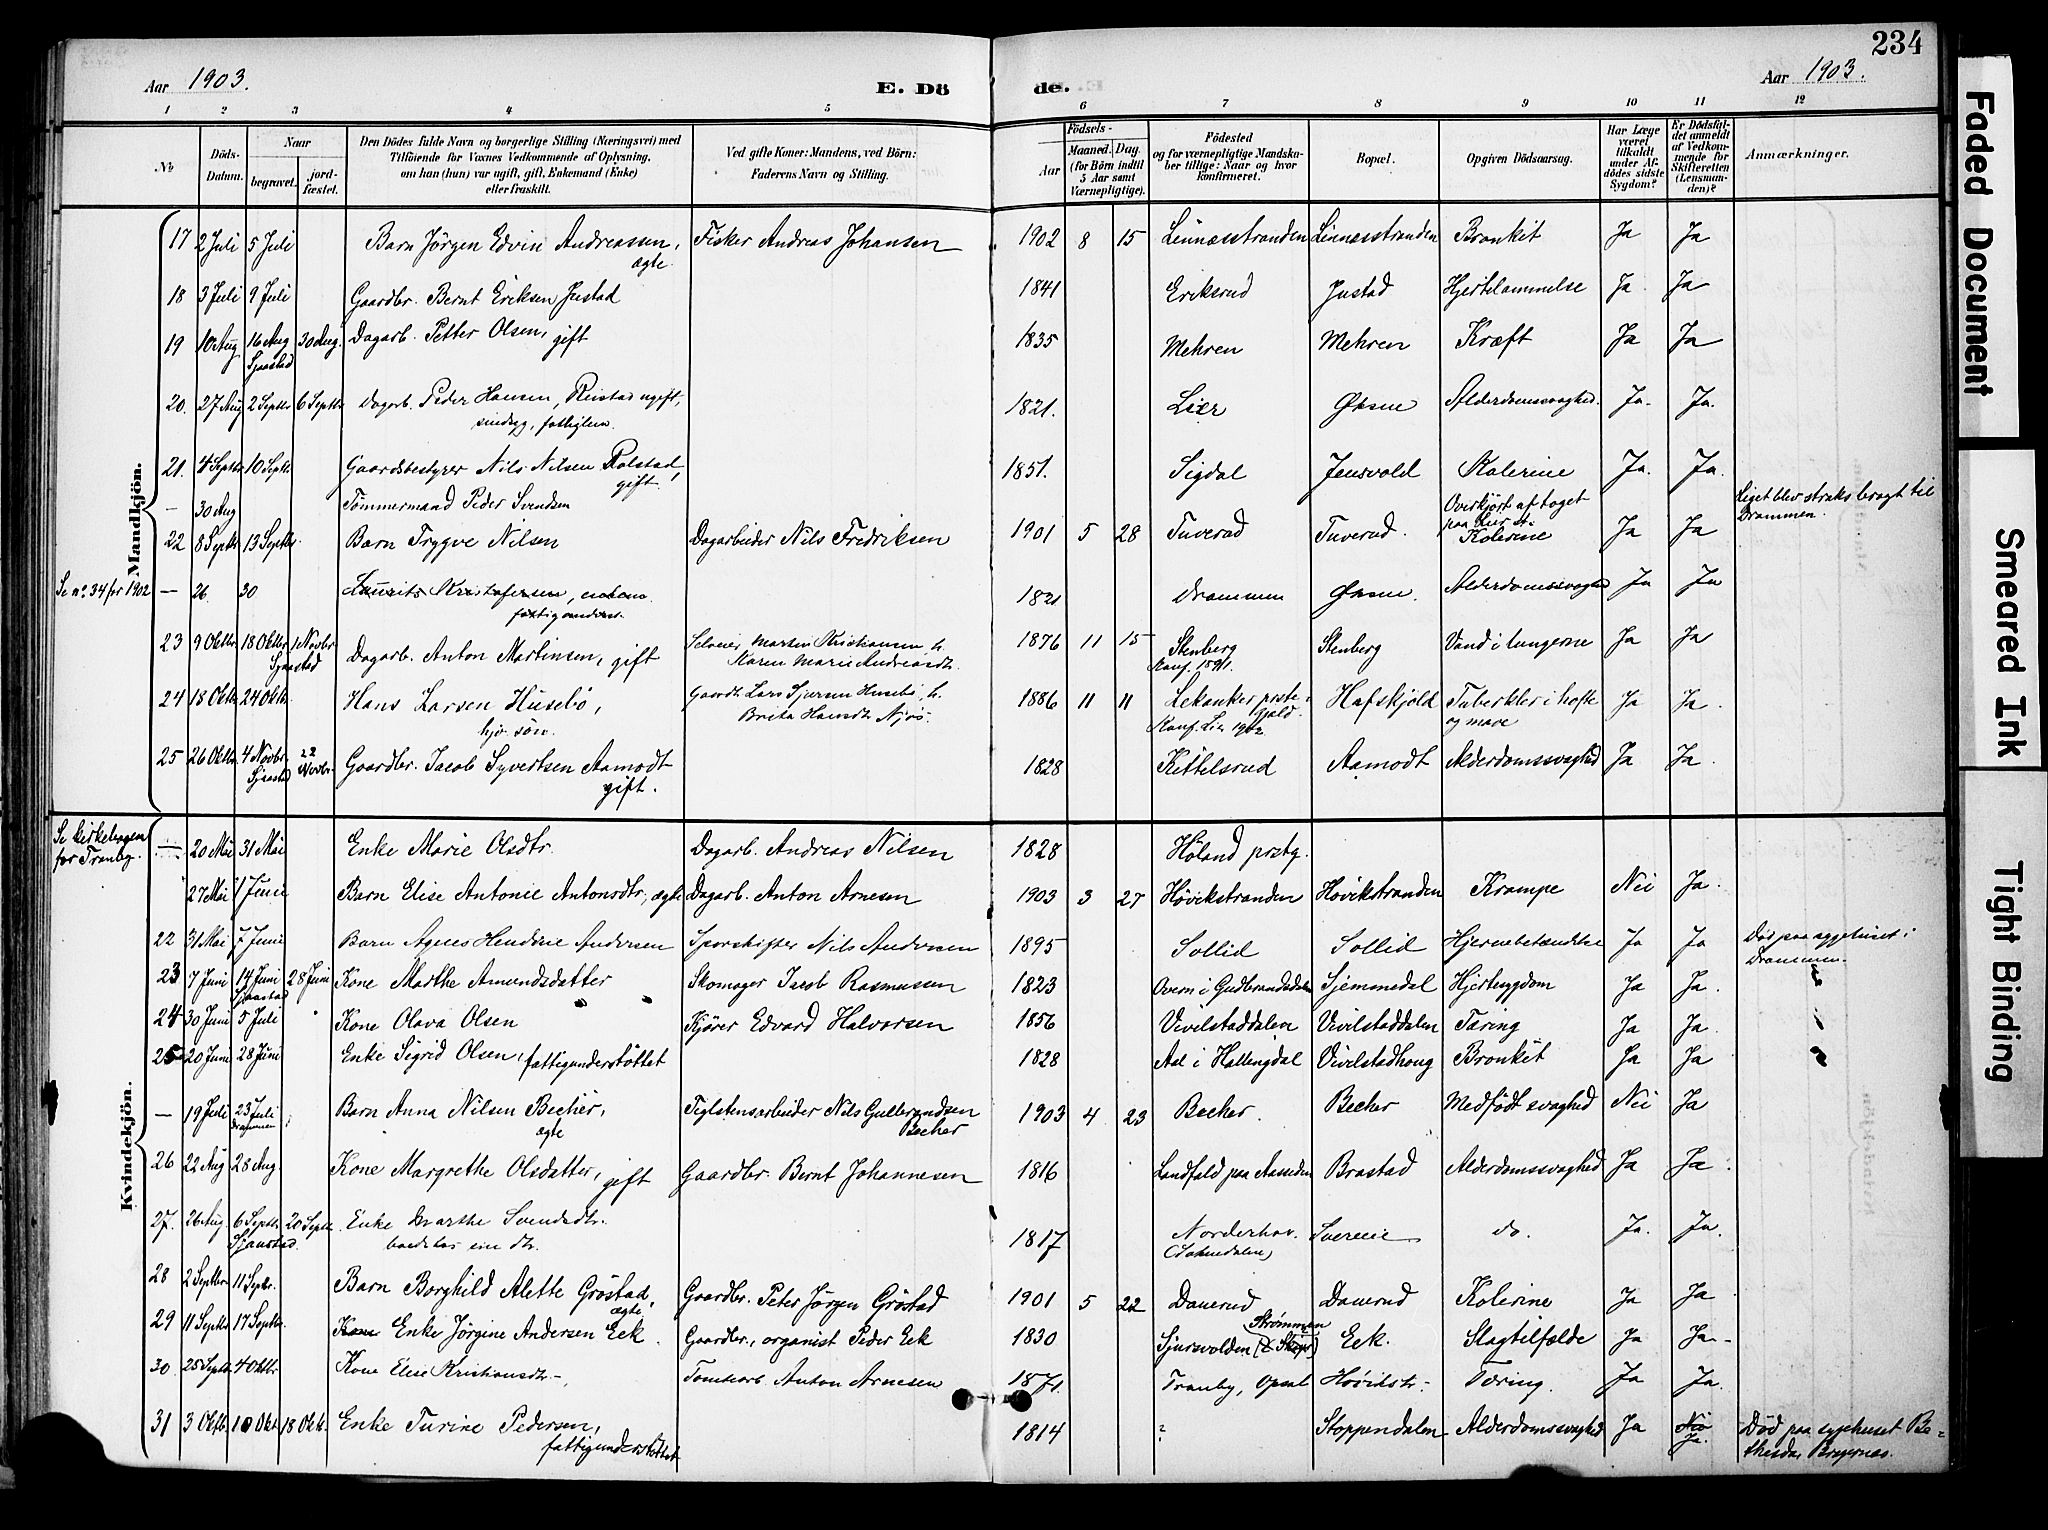 234
Aar 1903.
E. Dö
de.
Aar 1903.
1 2 3 4 5 6 7 8 9 10 11 12
No
Döds-Datum.
Naar
begravet.
jord-fæstet.
Den Dödes fulde Navn og borgerlige Stilling (Næringsvei) med
Tilföiende for Voxnes Vedkommende af Oplysning,
om han (hun) var ugift, gift, Enkemand (Enke)
eller fraskilt.
Ved gifte Koner: Mandens, ved Börn:
Faderens Navn og Stilling.
Födsels-
Aar
Maaned. Dag.
(for Börn indtil
5 Aar samt
Værnepligtige).
Födested
og for værnepligtige Mandska-
ber tillige: Naar og hvor
konfirmeret.
Bopæl.
Opgiven Dödsaarsag.
Har Læge
været
tilkaldt
under Af-
dödes sidste
Sygdom?
Er Dödsfal-
det anmeldt
af Vedkom-
mende for
Skifteretten
(Lensman-
den)?
Anmærkninger.
Mandkjön.
17 2 Juli 5 Juli Barn Jörgen Edvin Andreassen, ægte. Fisker Andreas Johansen 1902 8 15 Linnæsstranden Linnæsstranden Bronkit Ja Ja
18 3 Juli 9 Juli Gaardbr. Bernt Eriksen Justad 1841 Eriksrud Justad Hjertelammelse Ja Ja
19 10 Aug 16 Aug Sjaastad 30 Aug. Dagarb. Petter Olsen, gift 1835 Mehren Mehren Kræft Ja Ja
20. 27 Aug 2 Septbr 6 Septbr Dagarb. Peder Hansen, Reistad ugift, sindssyg, fattiglem. 1821. Lier Øksne Alderdomssvaghed. Ja. Ja.
21. 4 Septbr 10 Septbr Gaardsbestyrer Nils Nilsen Rolstad, gift. 1851. Sigdal Jensvold Kolerine Ja. Ja.
— 30 Aug Tömmermand Peder Svendsen Overkjørt af toget paa Lier st. Liget blev straks bragt til Drammen.
22 8 Septbr 13 Septbr. Barn Trygve Nilsen Dagarbeider Nils Fredriksen 1901 5 28 Tuverud Tuverud. Kolerine Ja Ja
Se no. 34 for 1902 — 26 30 Laurits Kristofersen, enkem. fattigunderst. 1821 Drammen Øksne. Alderdomssvaghed Ja Ja
23 9 Oktbr 18 Oktbr Sjaastad 1 Novbr Dagarb. Anton Martinsen, gift Selveier Martin Kristiansen h. Karen Marie Andreasdtr. 1876 11 15 Stenberg Konf. 1891. Stenberg Vand i lungerne Ja Ja
24 18 Oktbr 24 Oktbr. Hans Larsen Husebö, hjv. sön. Gaardbr. Lars Husebö, h. Brita Hansdtr. Njøs. 1886 11 11 Lekanker prstegjeld. Konf. Lier 1902 Hafskjöld Tuberkler i hofte og mave Ja Ja.
25 26 Oktbr. 4 Novbr. Sjaastad 22 Novbr. Gaardbr. Jacob Syvertsen Aamodt gift. 1828 Kittelsrud Aamodt Alderdomssvaghed Ja Ja.
Kvindekjön.
Se kirkebogen for Tranby. — 20 Mai 31 Mai Enke Marie Olsdtr. Dagarb. Andreas Nilsen 1828 Höland prstg.
27 Mai 1 Juni Barn Elise Antonie Antonsdtr., ægte Dagarb. Anton Arnesen 1903 3 27 Hövikstranden Hövikstranden Krampe Nei Ja.
22 31 Mai 7 Juni Barn Agnes Hendrine Andersen Sporskifter Nils Andersen 1895 Sollid Sollid Hjernebetændelse Ja Ja Død paa sygehuset i Drammen.
23 7 Juni 14 Juni Sjaastad 28 Juni Kone Marthe Amundsdatter Skomager Jacob Rasmussen 1823 i Gudbrandsdalen Sjemmedal Hjertesygdom Ja Ja.
24 30 Juni 5 Juli Kone Olava Olsen Kjörer Edvard Halvorsen 1856 Vivilstaddalen Vivilstaddalen Tæring Ja Ja.
25 20 Juni 28 Juni Enke Sigrid Olsen, fattigunderstöttet 1828 Aal i Hallingdal Vivilstadhaug Bronkit Ja Ja
— 19 Juli 23 Juli Drammen Barn Anna Nilsen Becher, ægte Teglstensarbeider Nils Gulbrandsen Becher 1903 4 23 Becher. Becher Medfödt svaghed Nei Ja
26 22 Aug 28 Aug. Kone Margrethe Olsdatter, gift Gaardbr. Bernt Johannesen 1816 Landfald paa Aassiden Brastad Alderdomssvaghed Ja Ja.
27. 26 Aug. 6 Septbr. Sjaastad. 20 Septbr. Enke Marthe Svendsdtr. 1817 Norderhov. (Sokndalen) do. Ja. Ja.
28 2 Septbr 11 Septbr. Barn Borghild Alette Gröstad, ægte Gaardbr. Peter Jörgen Gröstad 1901 5 22 Danerud Danerud Kolerine Ja Ja
29 11 Septbr 17 Septbr. Kone Enke Jörgine Andersen Eek. Gaardbr., organist Peder Eek 1830 Sjursvolden (Strömmen) Eek. Slagtilfælde Ja Ja
30. 25 Septbr. 4 Oktbr. Kone Elise Kristiansdtr. Tomtearb. Anton Arnesen 1871. Tranby, Opsal Hövikstr. Tæring. Ja Ja.
31 3 Oktbr. 10 Okt. 18 Okt. Enke Turine Pedersen, fattigunderstöttet 1814 ? Stoppendalen Alderdomssvaghed Ja Nei Ja. Död paa sygehuset Bethesda, Bragernæs.
Faded Document
Smeared Ink
Tight Binding